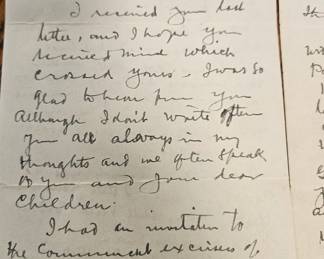 I received your last
letter, and I hope you
received mine which
crossed yours – I was so
glad to hear from you
Although I don't write often
you all always in my
thoughts and we often speak
of you and your dear
children.
I had an invitation to
the Commencement excercises of